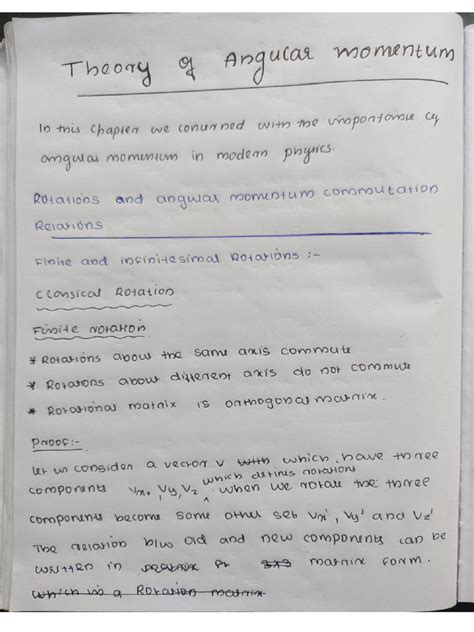 Theory of Angular momentum
In this Chapter we conurned with the importance of
angular momentum in modern physics.
Rotations and angular momentum commutation
Relations.
Finite and infinitesimal Rotations :-
Classical Rotation
Finite rotation
* Rotations about the same axis commute
* Rotations about different axis do not commute
* Rotational matrix is orthogonal matrix.
Proof:-
let us consider a vector v with which have three
which defines rotations
components Vx, Vy, Vz, when we rotate the three
components become some other set Vx', Vy' and Vz'
The relation b/w old and new components can be
written in 3x3 matrix form.
which is a Rotation matrix